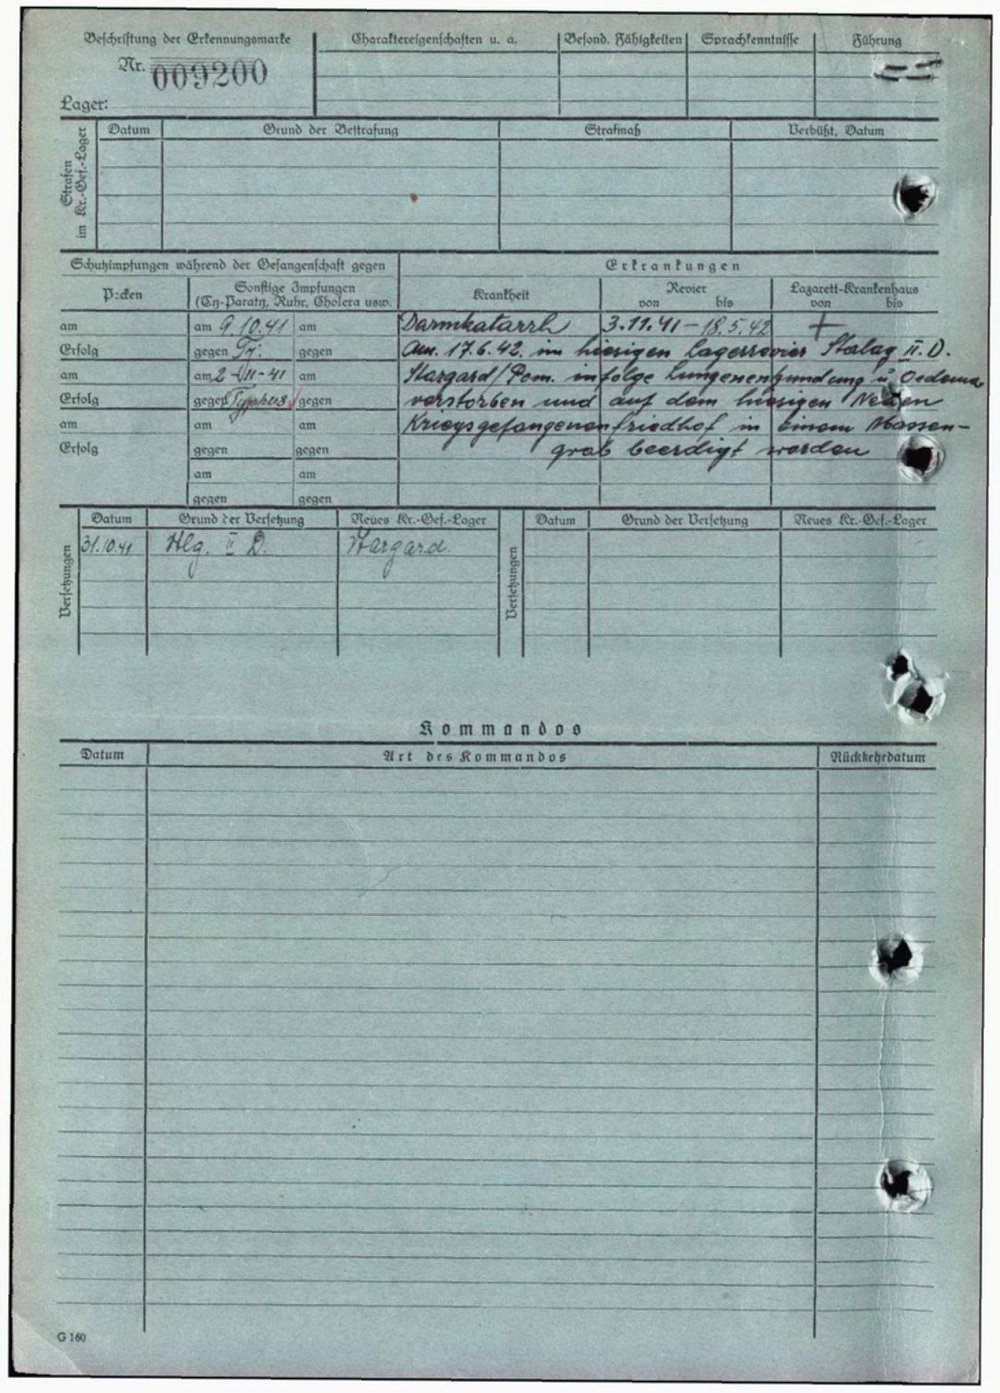 Beschriftung der Erkennungsmarke
Nr. 009200
Lager:
Charaktereigenschaften u. a.
Besond. Fähigkeiten
Sprachkenntnisse
Führung
Strafen im Kr.-Gef.-Lager
Datum
Grund der Bestrafung
Strafmaß
Verbüßt, Datum
Schutzimpfungen während der Gefangenschaft gegen
Erkrankungen
Pocken
Sonstige Impfungen
(Ty-Paraty, Ruhr, Cholera usw.
Krankheit
Revier
von bis
Lazarett-Krankenhaus
von bis
am am 9.10.41 am Darmkatarrh 3.11.41 – 18.5.42 +
Erfolg gegen Ty. gegen Am. 17.6.42. im hiesigen Lagerrevier Stalag II. D.
am am 2-VII-41 am Stargard/Pom. infolge Lungenentzündung u. Oedema
Erfolg gegen Typhus gegen verstorben und auf dem hiesigen Neuen
am am am Kriegsgefangenenfriedhof in einem Massen-
Erfolg gegen gegen grab beerdigt worden
am am
gegen gegen
Versetzungen
Datum Grund der Versetzung Neues Kr.-Gef.-Lager
31.10.41 Stlg. II D. Stargard.
Versetzungen
Datum Grund der Versetzung Neues Kr.-Gef.-Lager
Kommandos
Datum Art des Kommandos Rückkehrdatum
G 160